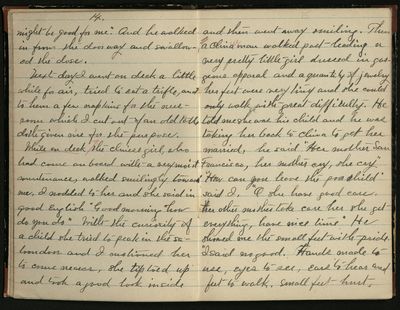 14.
might be good for me." And he walked
in from the doorway and swallow-
ed the dose.
Next day I went on deck a little
while for air, tried to eat a trifle, and
to hem a few napkins for the
some which I cut out of an old cloth
given me for the purpose.
While on deck the chinese girl who
had come on board with a very
countenance, walked smilingly toward
me, I nodded to her and she said in
good English "Good morning how
do you do" With the curiosity of
a child she tried to peek in the sa-
loon door and I motioned her
to come nearer, she tip toed up
and took a good look inside
and then went away smiling. Then
a chinaman walked past leading a
very pretty little girl dressed in gor-
geous apparel and a quantity of jewelry
her feet were very tiny and she could
only walk with great difficulty. He
told me she was his child and he was
taking her back to China to get her
married, he said "Her mother San
Francisco, her mother cry, she cry"
"How can you leave the poor child"
said I. "O she have good care.
The other mother take care her she get
everything, have nice time" He
showed me the small feet with pride.
I said no good. Hands made to
use, eyes to see, ears to hear and
feet to walk. small feet hurt,